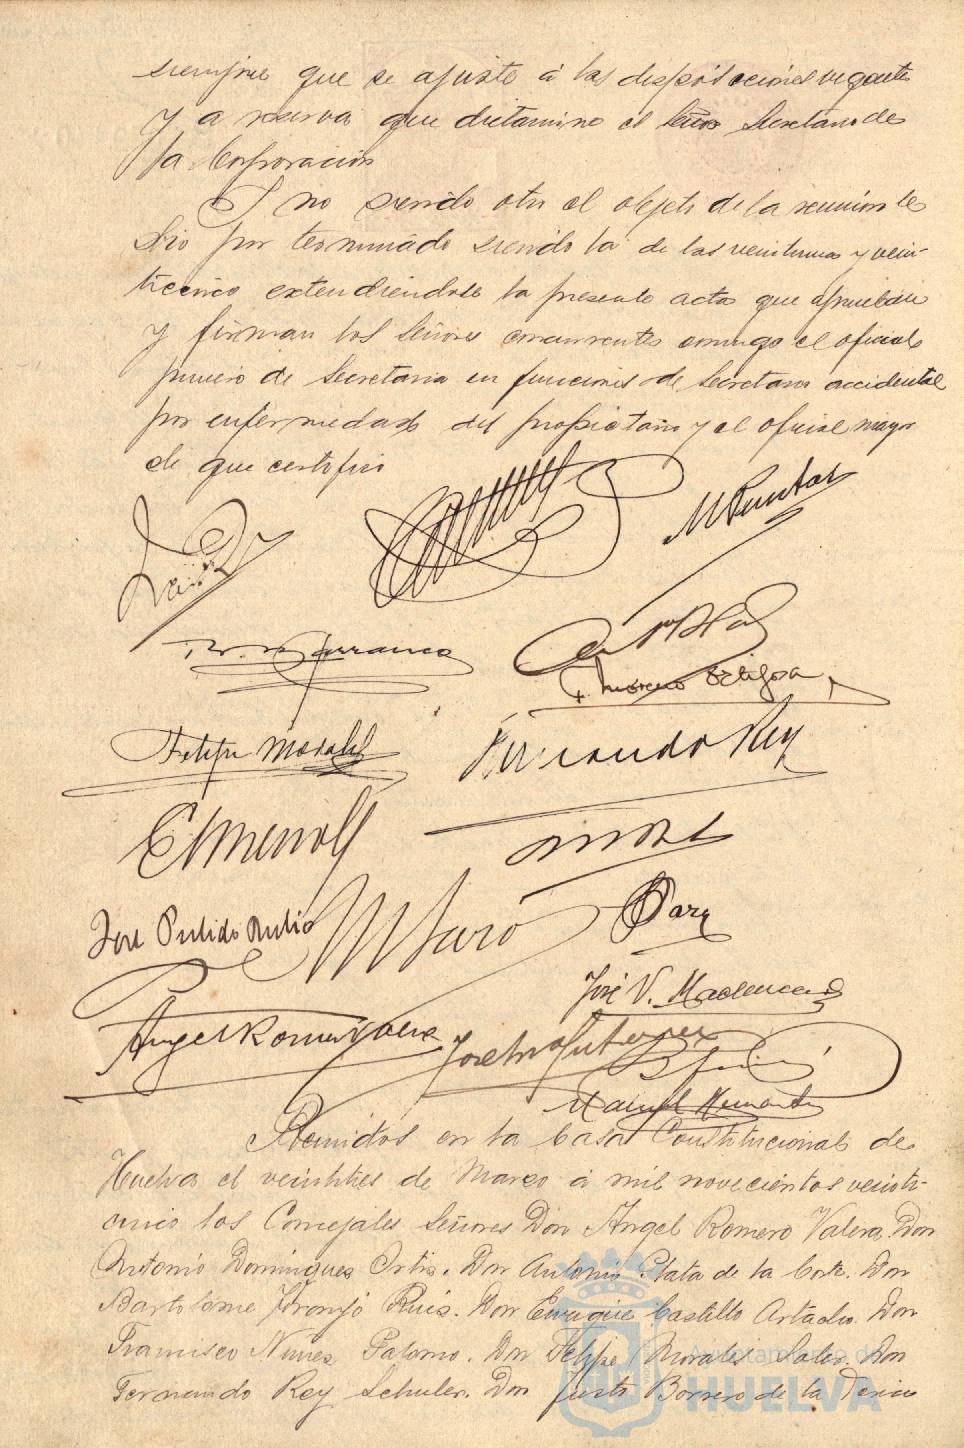 siempre que se ajuste á las disposiciones vigentes
y a reserva que dictamine el Señor Secretario de
la Corporación
Y no siendo otro el objeto de la reunión se
dio por terminado siendo la de las veintiuna y vein-
ticinco extendiéndose la presente acta que aprueban
y firman los Señores concurrentes conmigo el oficial
primero de Secretaria en funciones de Secretario accidental
por enfermedad del propietario y el oficial mayor
de que certifico
M Puntas
Carranca
F. Moreno Ortigosa
Felipe Morales
Fernando Rey
José Pulido Rubio
José V. Maclencan
Angel Romero Valera
José Gutierrez
Manuel
Reunidos en la Casa Constitucional de
Huelva el veintitres de Marzo á mil novecientos veinti-
cinco los Concejales Señores Don Ángel Romero Valera. Don
Antonio Domínguez Ortiz. Don Antonio Plata de la Corte. Don
Bartolome Naranjo Ruiz. Don Enrique Castillo Don
Francisco Nunes Palomo. Don Felipe Morales Don
Fernando Rey Schuler. Don Justo Borrero de la
Ayuntamiento de
HUELVA